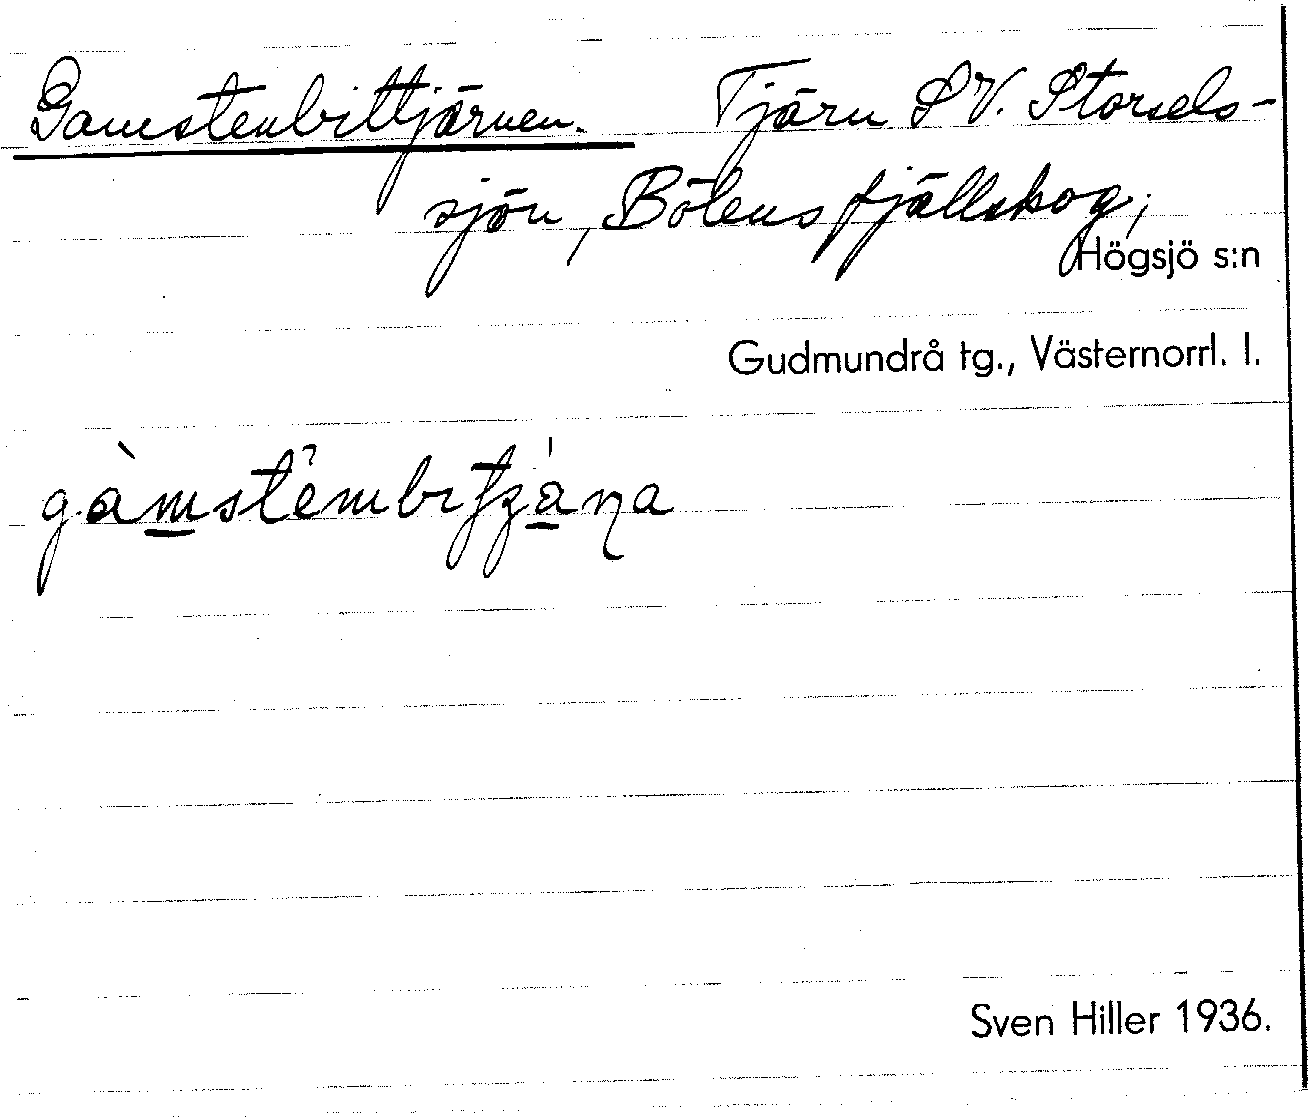 Gamstenbittjärnen. Tjärn SV. Storsels-
sjön, Bölens fjällskog,
Högsjö s:n
Gudmundrå tg., Västernorrl. l.
Sven Hiller 1936.